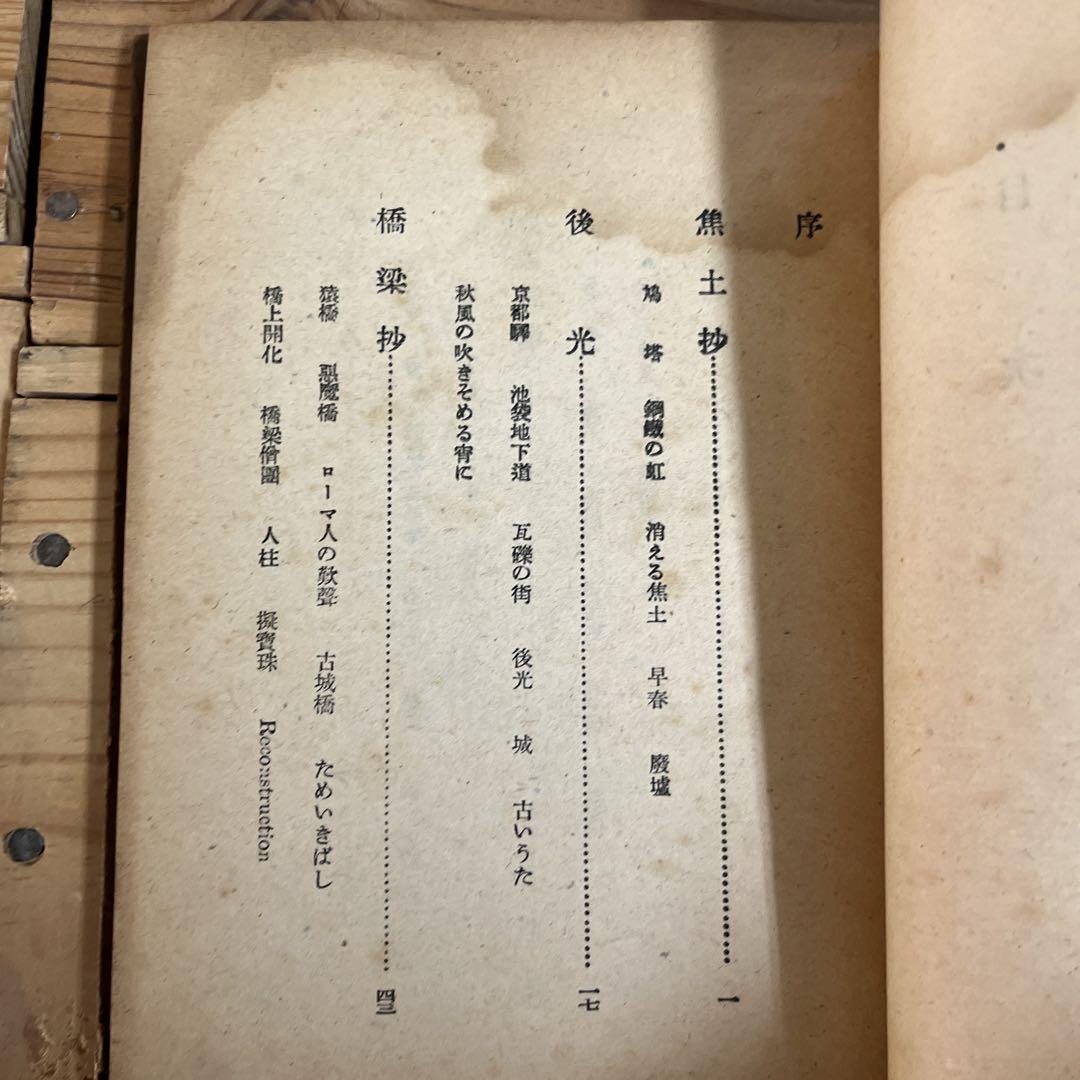 序
焦土抄……………一
鳩　塔　鋼鐵の虹　消える焦土　早春　廢墟
後光……………一七
京都驛　池袋地下道　瓦礫の街　後光　城　古いうた
秋風の吹きそめる宵に
橋梁抄……………四三
猿橋　惡魔橋　ローマ人の歎聲　古城橋　ためいきばし
橋上開化　橋梁僧團　人柱　擬寶珠　Reconstruction